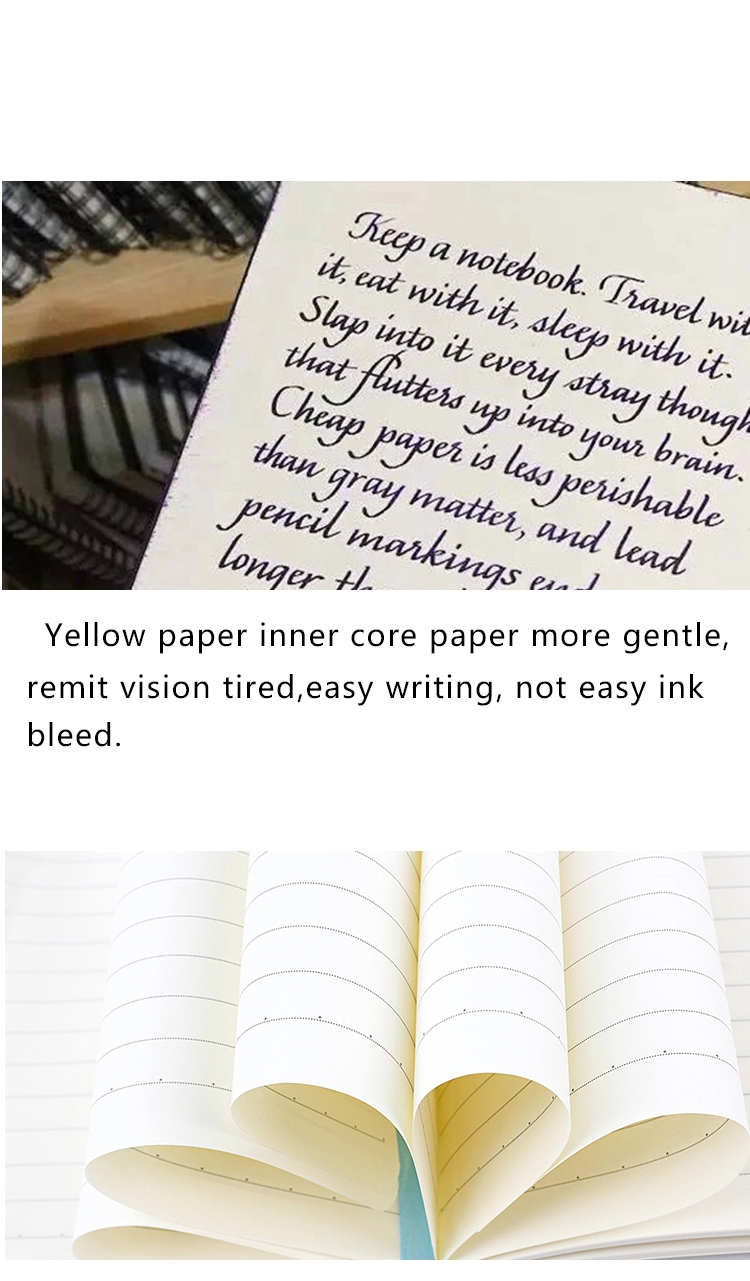 Keep a notebook. Travel wit
it, eat with it, sleep with it.
Slap into it every stray though
that flutters up into your brain.
Cheap paper is less perishable
than gray matter, and lead
pencil markings end
longer th
Yellow paper inner core paper more gentle,
remit vision tired,easy writing, not easy ink
bleed.